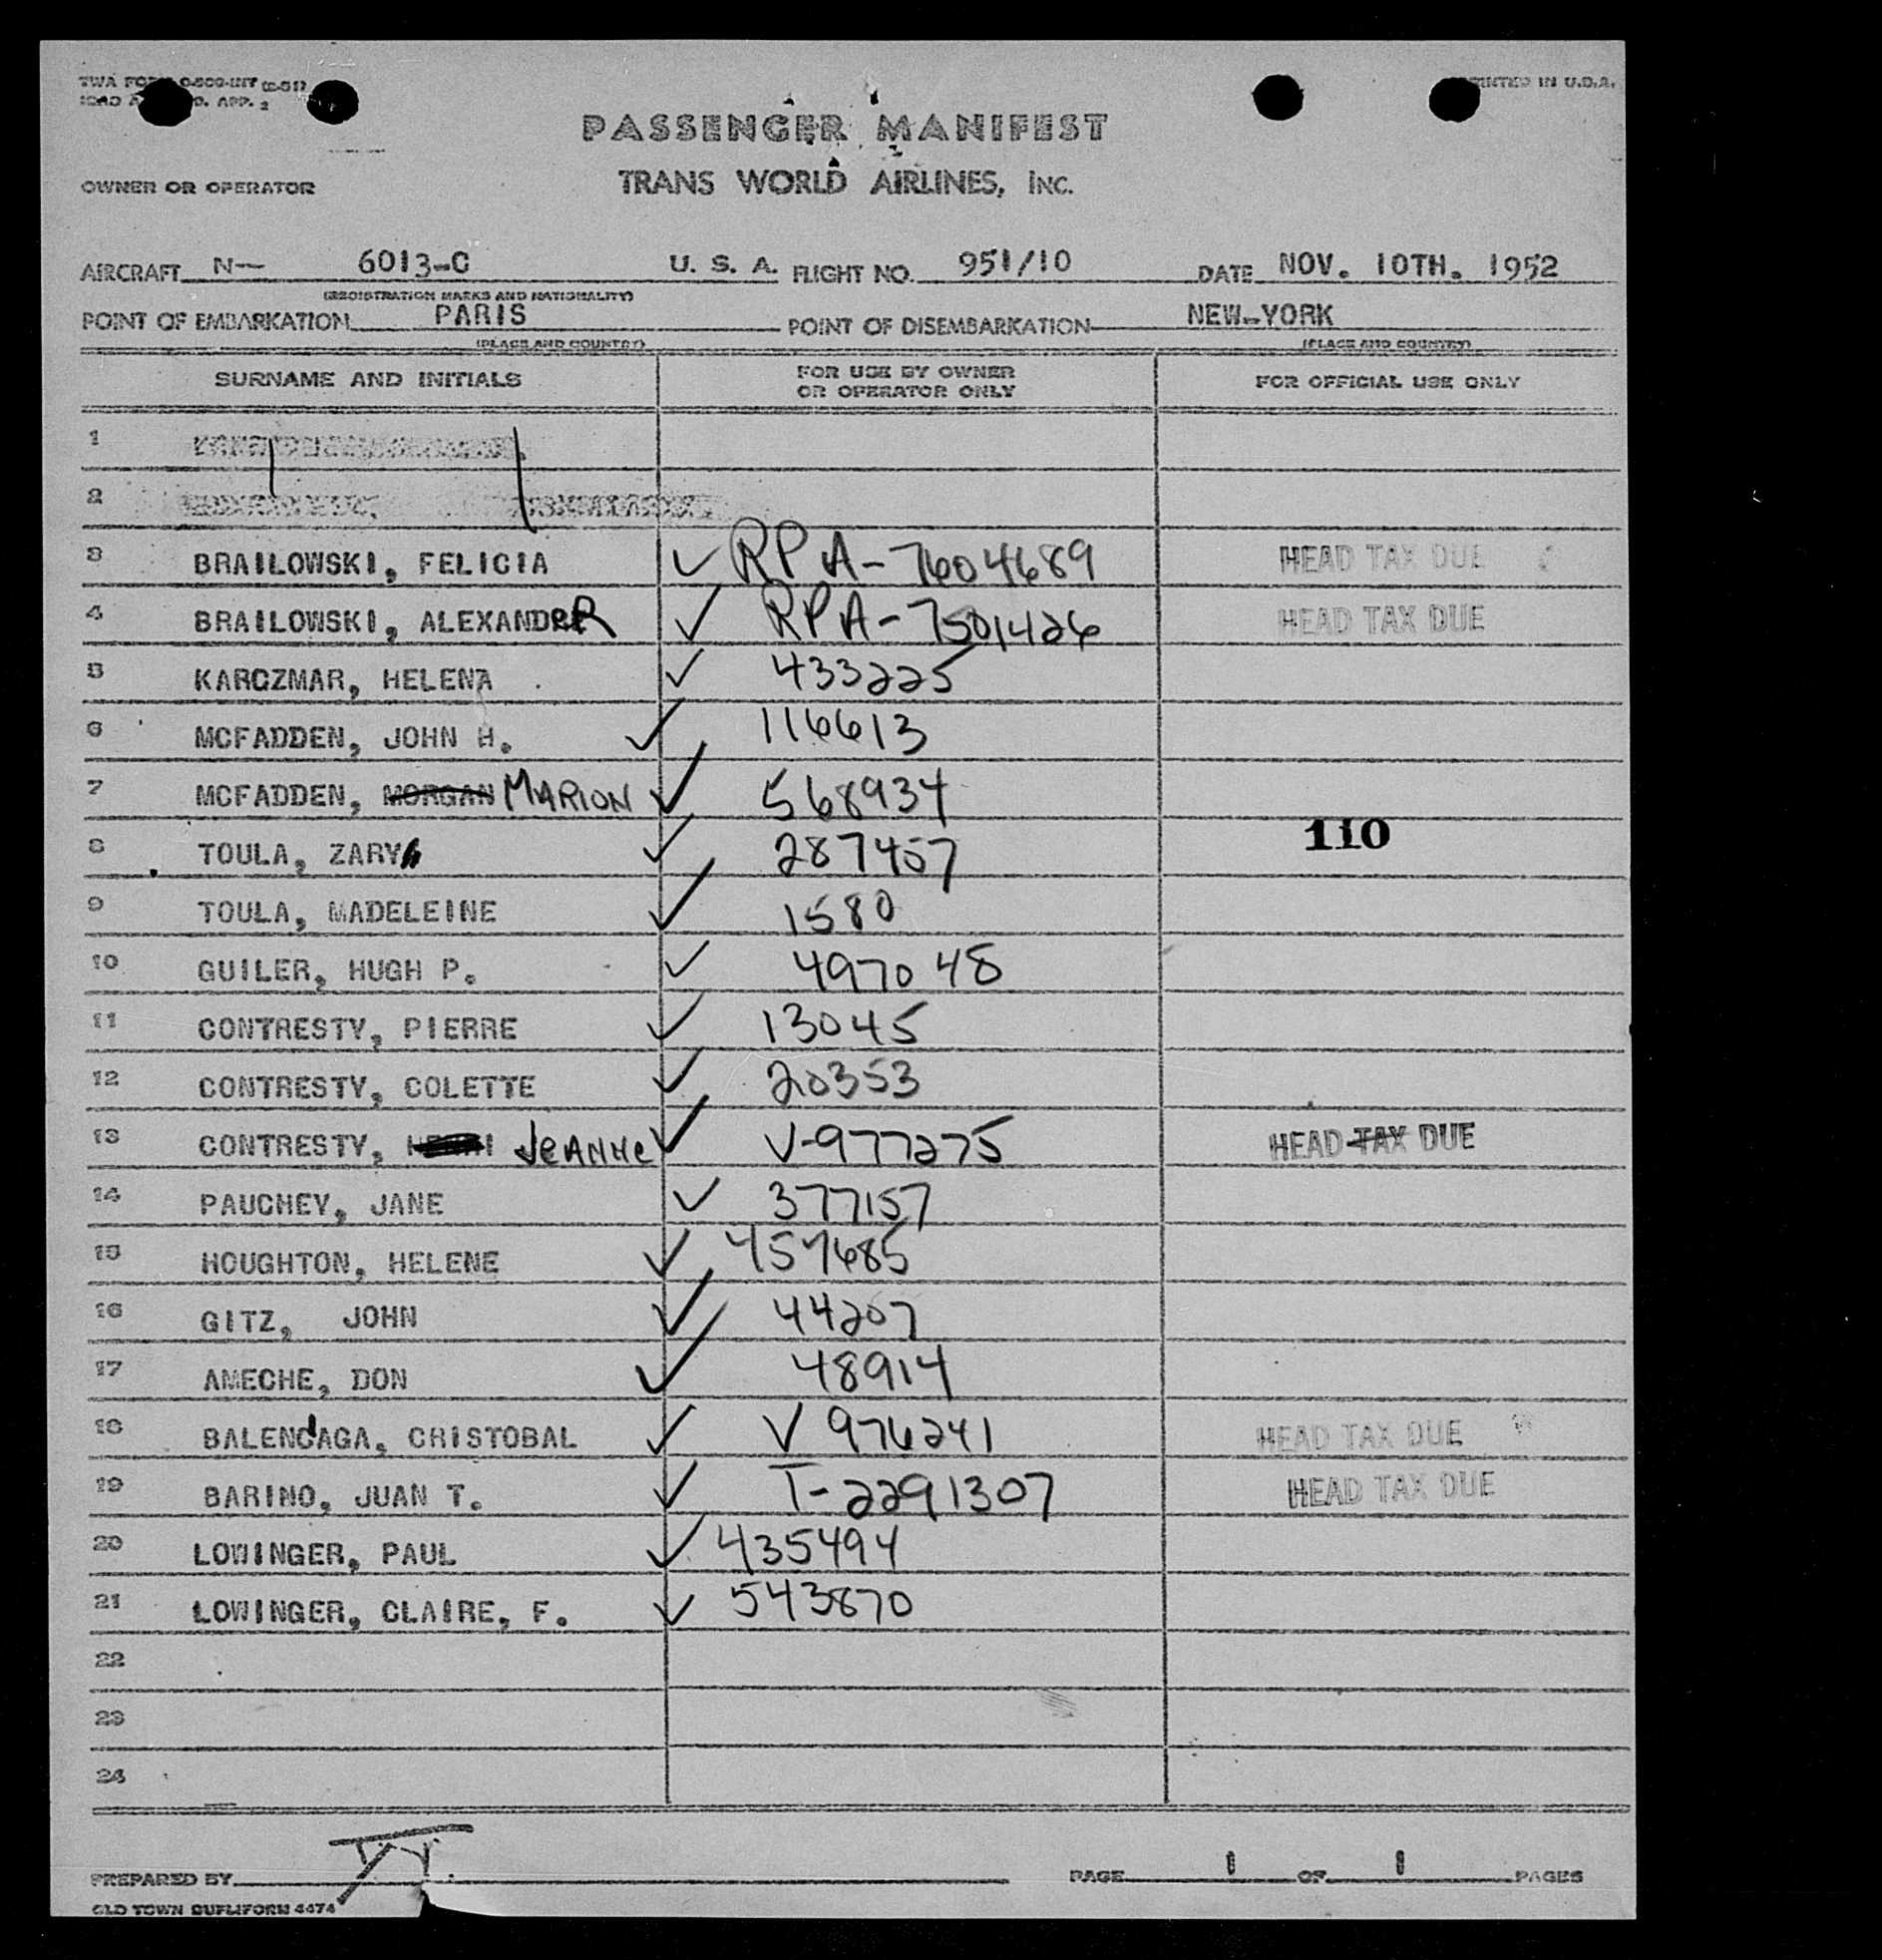 TWA FORM O-500-INT (2-51)
ICAO A D. APP. 2
PRINTED IN U.S.A.
PASSENGER MANIFEST
OWNER OR OPERATOR TRANS WORLD AIRLINES, INC.
AIRCRAFT N— 6013-C U. S. A. FLIGHT NO. 951/10 DATE NOV. 10TH. 1952
(REGISTRATION MARKS AND NATIONALITY)
POINT OF EMBARKATION PARIS POINT OF DISEMBARKATION NEW-YORK
(PLACE AND COUNTRY) (PLACE AND COUNTRY)
SURNAME AND INITIALS FOR USE BY OWNER OR OPERATOR ONLY FOR OFFICIAL USE ONLY
1
2
3 BRAILOWSKI, FELICIA ✓ RPA-7604689 HEAD TAX DUE
4 BRAILOWSKI, ALEXANDER ✓ RPA-7501426 HEAD TAX DUE
5 KARCZMAR, HELENA ✓ 433225
6 MCFADDEN, JOHN H. ✓ 116613
7 MCFADDEN, MORGAN MARION ✓ 568934
8 TOULA, ZARYH ✓ 287457 110
9 TOULA, MADELEINE ✓ 1580
10 GUILER, HUGH P. ✓ 497048
11 CONTRESTY, PIERRE ✓ 13045
12 CONTRESTY, COLETTE ✓ 20353
13 CONTRESTY, JEANNE ✓ V-977275 HEAD TAX DUE
14 PAUCHEY, JANE ✓ 377157
15 HOUGHTON, HELENE ✓ 457685
16 GITZ, JOHN ✓ 44207
17 AMECHE, DON ✓ 48914
18 BALENCIAGA, CRISTOBAL ✓ V 976241 HEAD TAX DUE
19 BARINO, JUAN T. ✓ T-2291307 HEAD TAX DUE
20 LOWINGER, PAUL ✓ 435494
21 LOWINGER, CLAIRE, F. ✓ 543870
22
23
24
PREPARED BY PAGE 1 OF 1 PAGES
OLD TOWN DUPLIFORM 4474